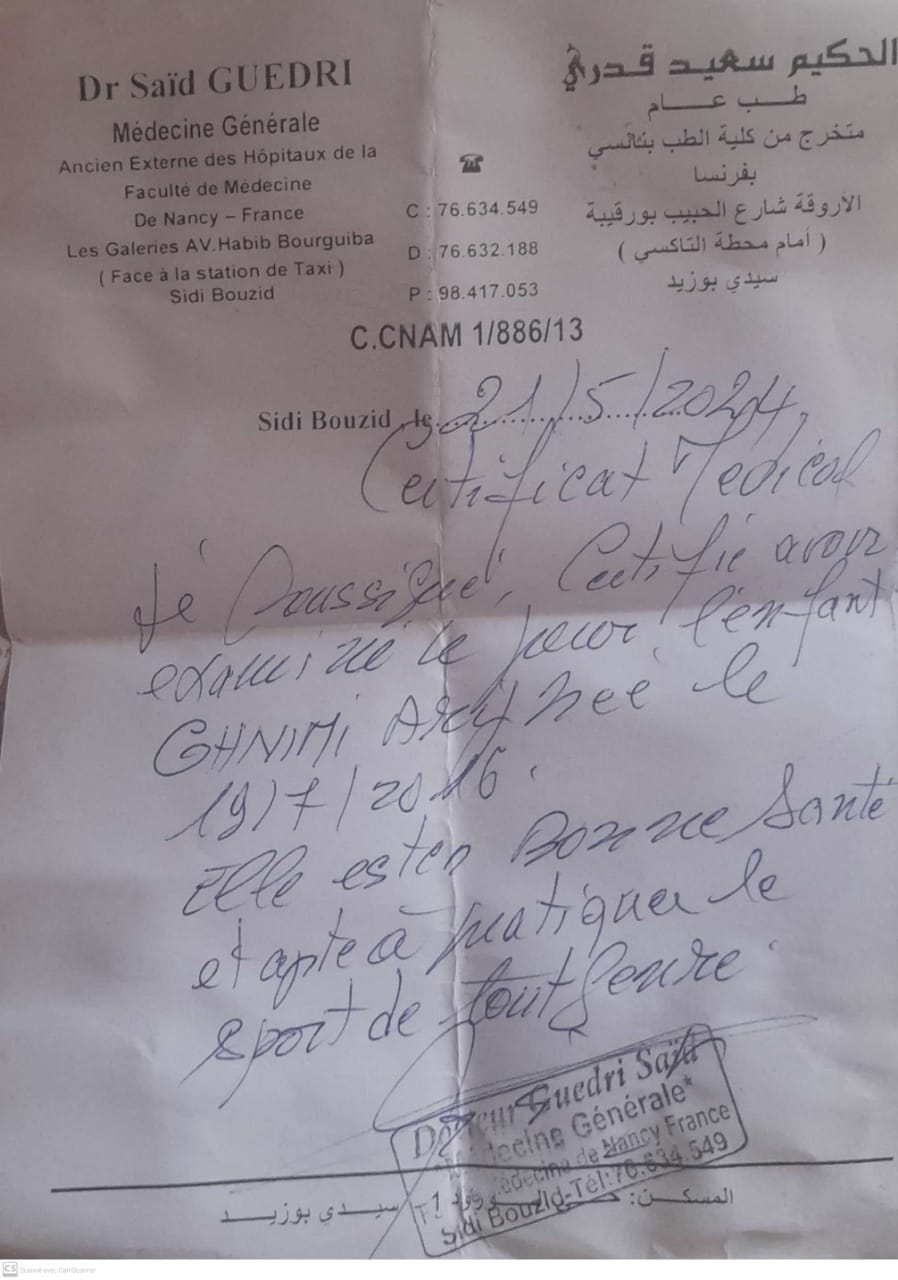 Dr Saïd GUEDRI
Médecine Générale
Ancien Externe des Hôpitaux de la
Faculté de Médecine
De Nancy – France
Les Galeries AV.Habib Bourguiba
( Face à la station de Taxi )
Sidi Bouzid
C : 76.634.549
D : 76.632.188
P : 98.417.053
الحكيم سعيد قدري
طب عام
متخرج من كلية الطب بنانسي
بفرنسا
الأروقة شارع الحبيب بورقيبة
( أمام محطة التاكسي )
سيدي بوزيد
C.CNAM 1/886/13
Sidi Bouzid , le 21/5/2024
Certificat Medical
Je Soussigné, Certifie avoir
examiné ce jour l'enfant
GHNIMI née le
19/7/2016.
Elle est en Bonne Santé
et apte à pratiquer le
sport de tout Genre.
Docteur Guedri Saïd
Médecine Générale*
Médecine de Nancy France
Sidi Bouzid-Tél:76.634.549
المسكن:
سيدي بوزيد
CS Scanné avec CamScanner